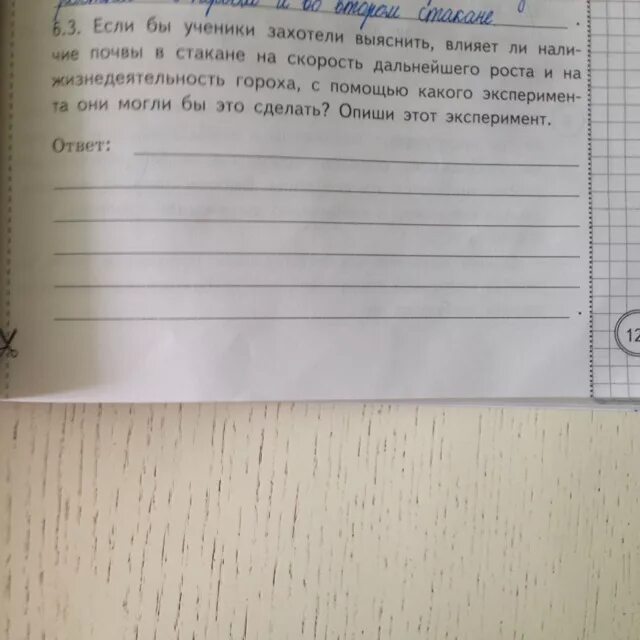 и во втором стакане
6.3. Если бы ученики захотели выяснить, влияет ли нали-
чие почвы в стакане на скорость дальнейшего роста и на
жизнедеятельность гороха, с помощью какого эксперимен-
та они могли бы это сделать? Опиши этот эксперимент.
Ответ:
12